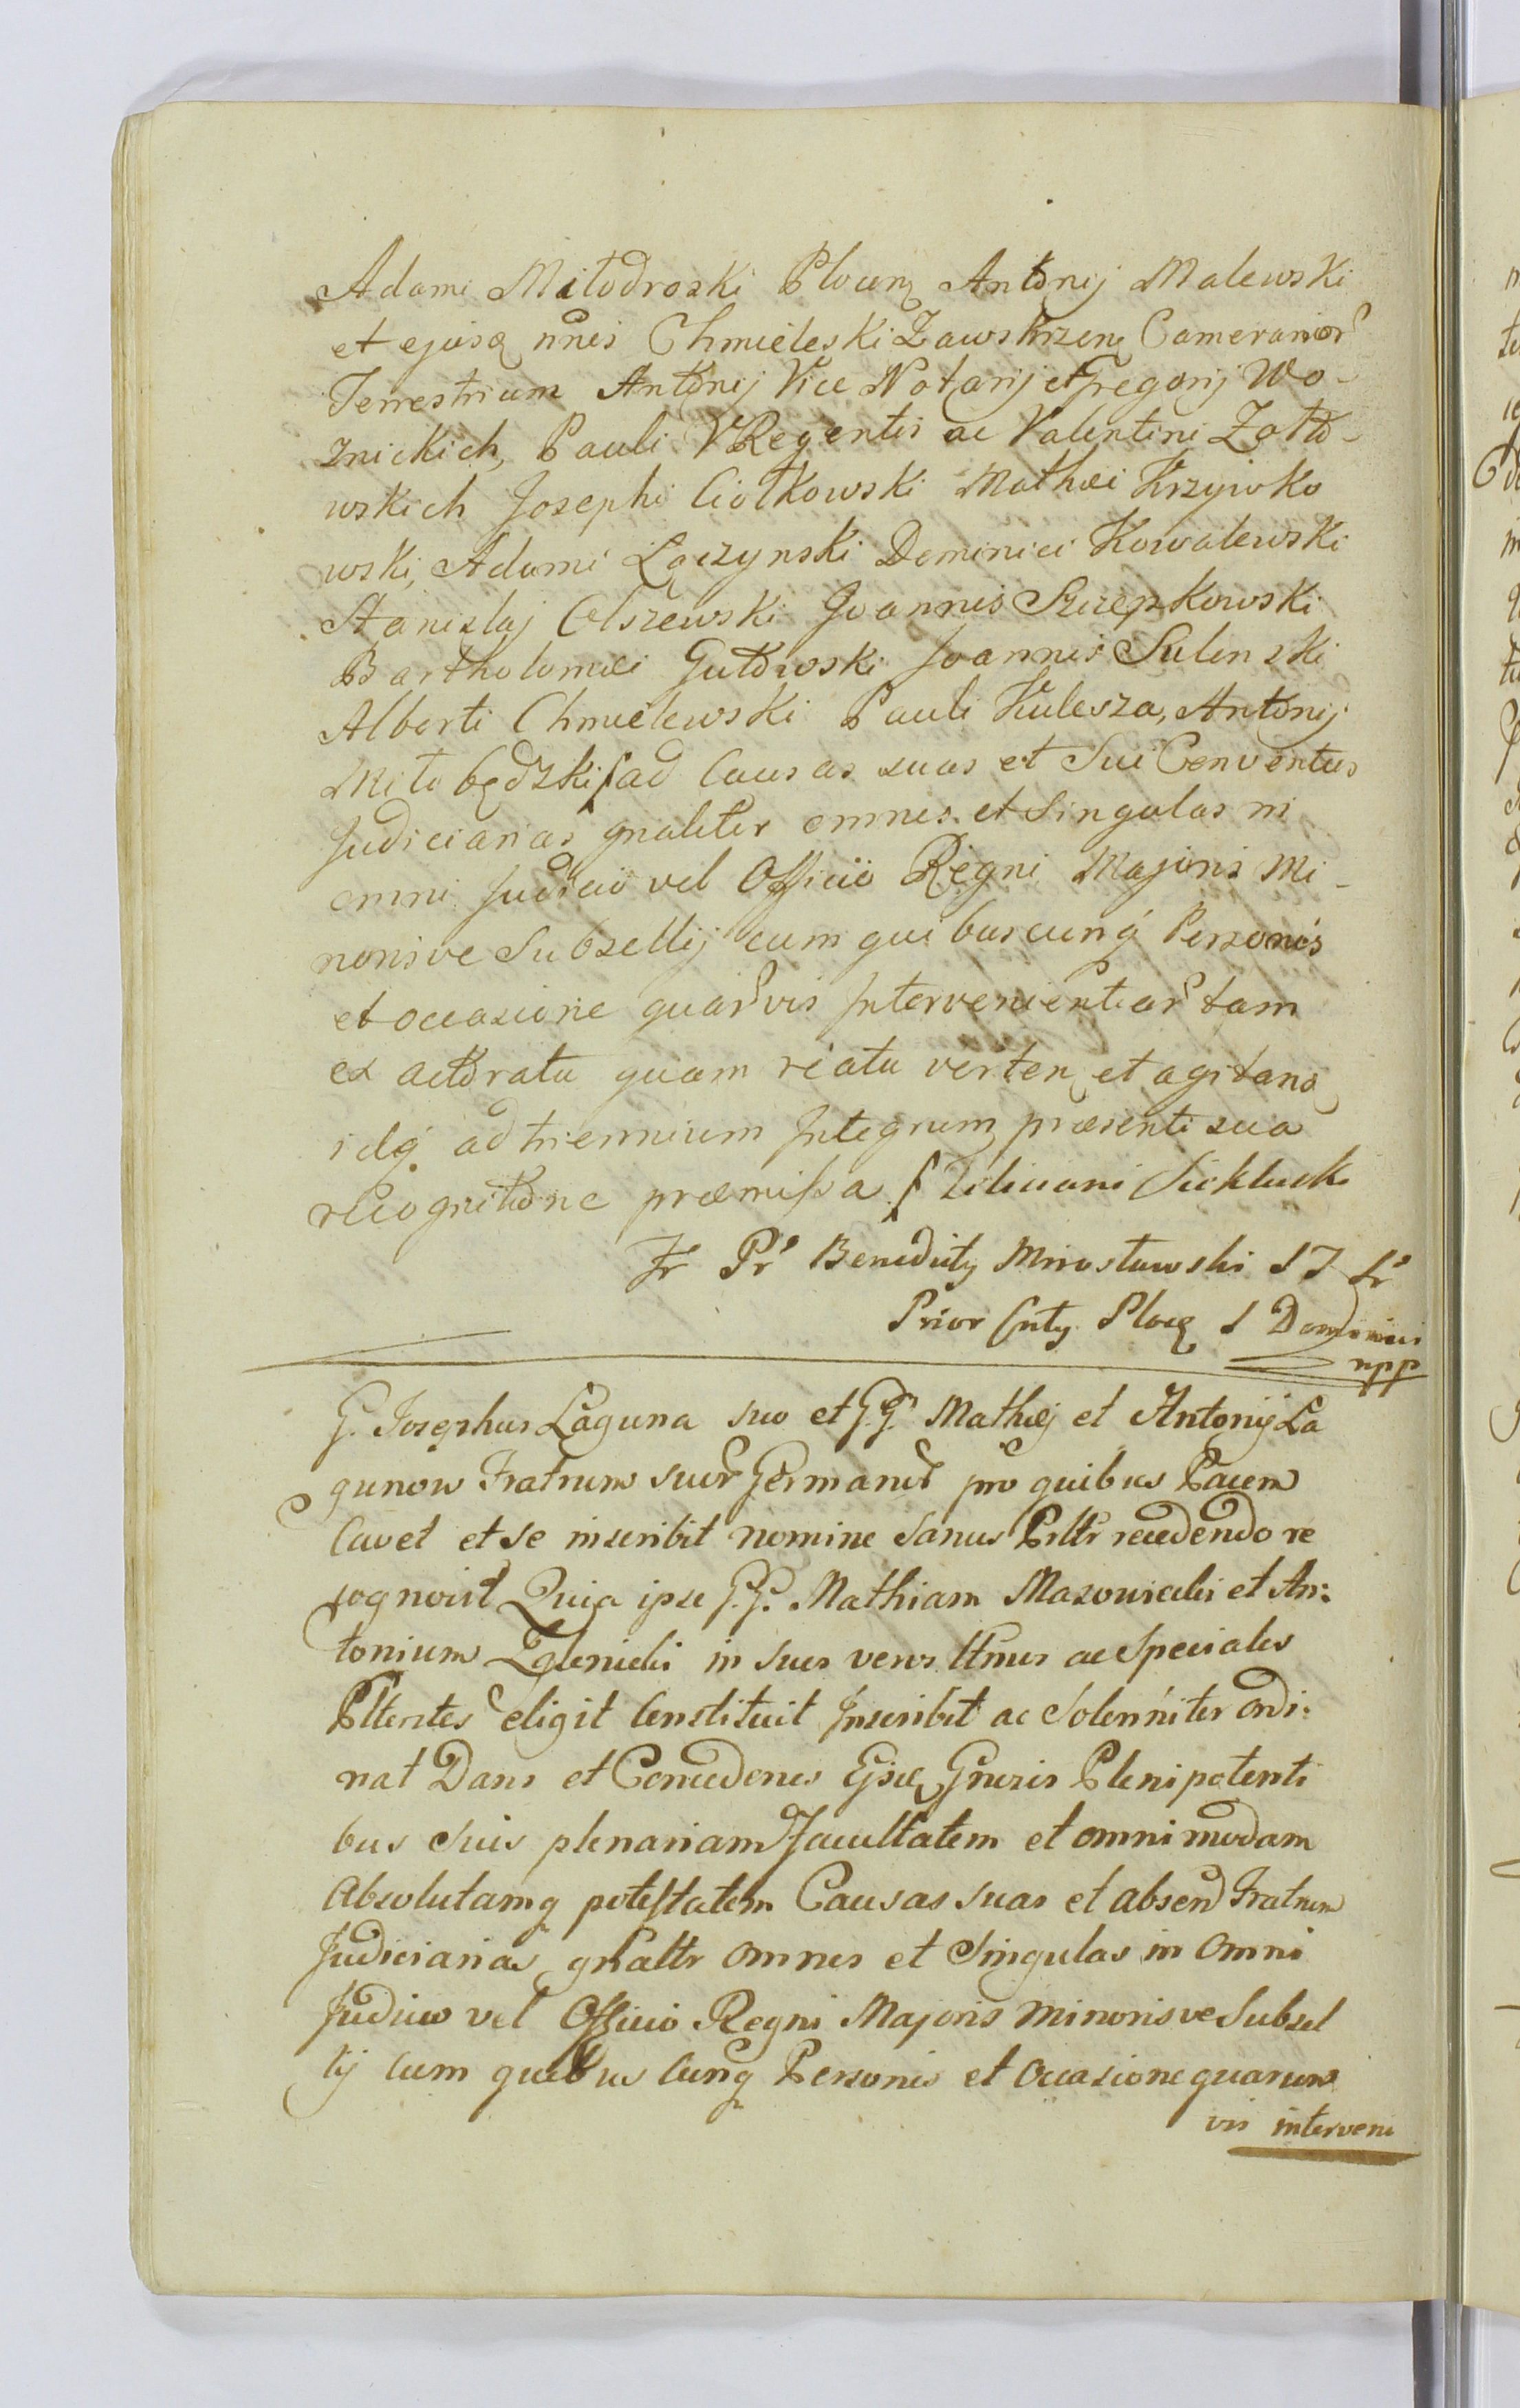 Adami Miłodroski Plocen Antonij Malewski
et ejusq nnis Chmieleski Zawskrzen Cameranior
Terrestrium Antonij Vice Notarij et Gregorij Wo-
znickich, Pauli VRegentis ac Valentini Zoło-
wskich Josephi Ciołkowski Mathæi Krzywko
wski, Adami Łączynski Dominici Kowalewski
Stanislaj Olszewski Joannis Szczepkowski
Bartholomæi Gutowski Joannis Sulinski
Alberti Chmielewski Pauli Kulesza, Antonij
Miłobędzki ad Causas suas et Sui Conventus
Judiciarias gnaliter omnes et Singulas in
omni Judicio vel Officio Regni Majoris Mi-
norisve Subsellij cum quibuscunq Personis
et occasione quarvis Intervenientiar tam
ex actoratu quam reatu verten et agitand
idq ad triennium Integrum præsenti sua
recognitione præmissa Feliciani Sickluck
Fr Pr Benedicty Mirosławski S T Lr
Prior Cnty Plocz S Dominici
mpp
G. Josephus Łaguna suo et G.G. Mathæj et Antonij Ła
gunow Fratrum suor Germanor pro quibus Pacem
Cavet et se inscribit nomine Sanus Prltr recedendo re
cognovit Quia ipse G.G. Mathiam Mazowiecki et An:
tonium Zglenicki in suos veros Ltmos ac Speciales
Pltentes eligit Constituit Inscribit ac Solenniter ordi:
nat Dans et Concedens Ejsd Gnrosis Plenipotenti
bus Suis plenariam Facultatem et omnimodam
Absolutamq potestatem Causas suas et absen Fratrum
Judiciarias gnaltr omnes et Singulas in Omni
Judicio vel Officio Regni Majoris Minorisve Subsel
lij Cum quibus Cunq Personis et Occasione quarum
vis interveni